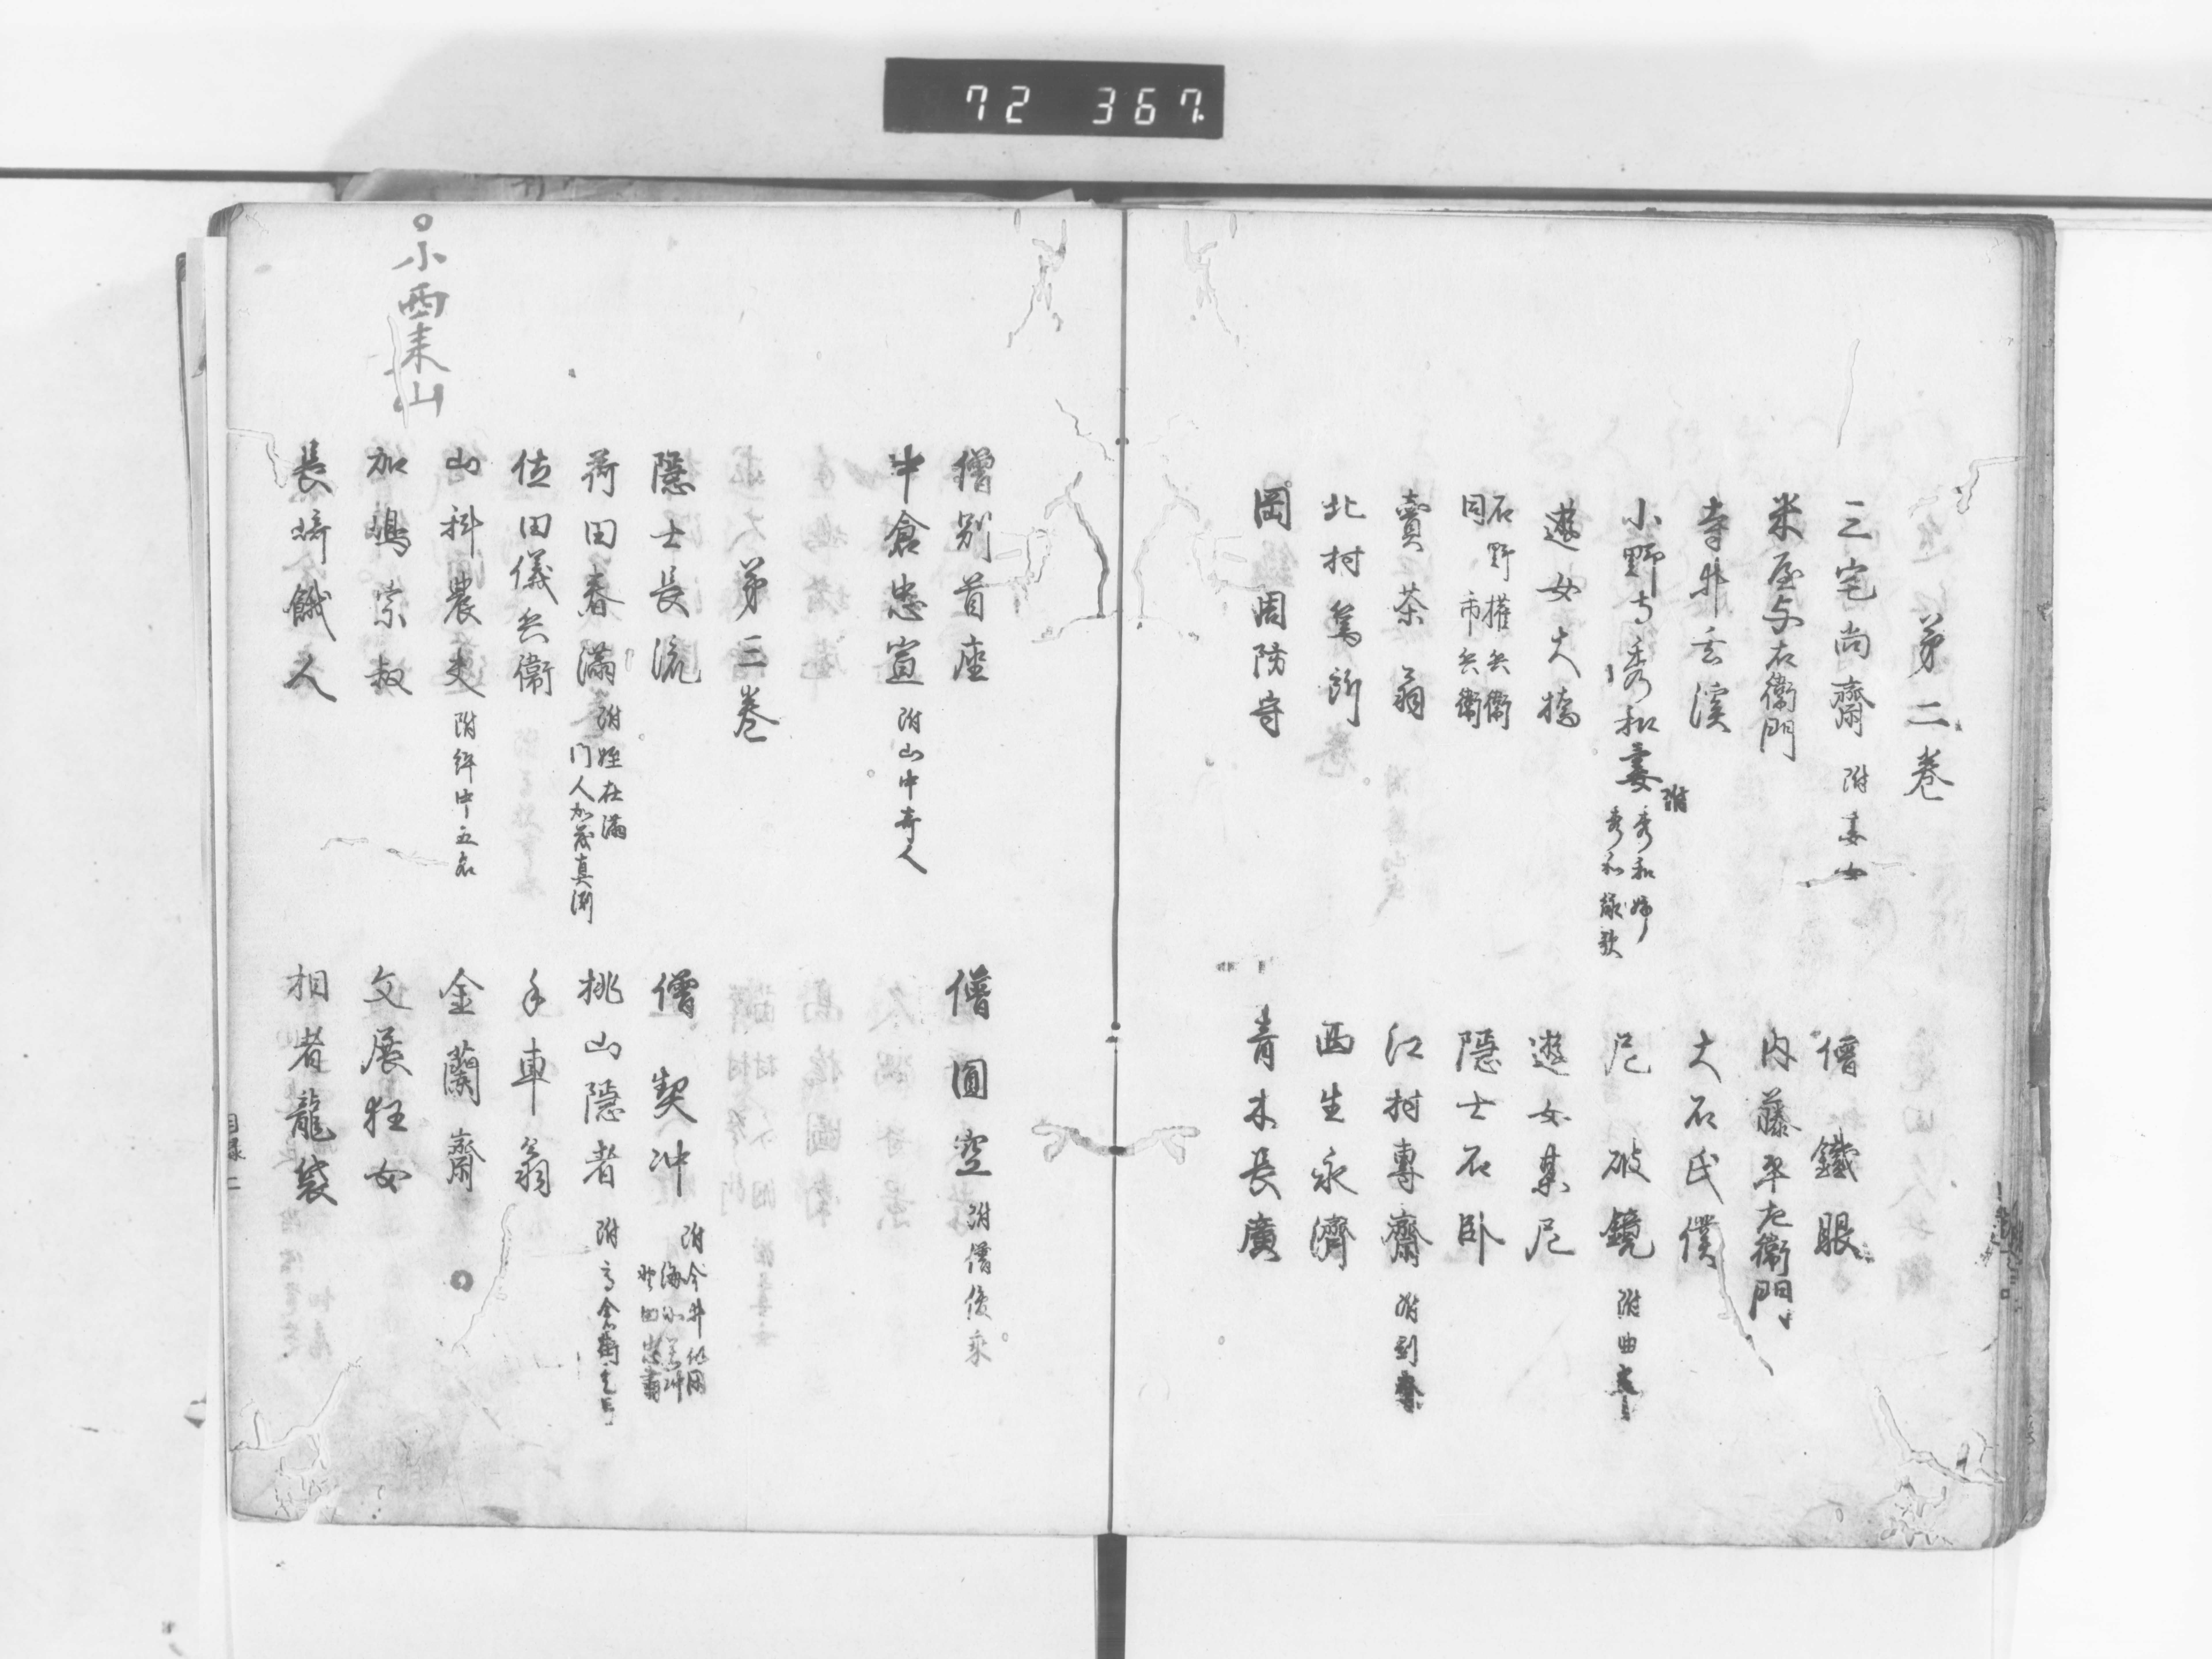 72 367
第二巻
三宅尚齋 附妻女
僧鐵眼
米屋与右衛門
内藤平左衛門
寺井玄渓
大石氏僕
小野寺秀和妻 附 秀和姉
秀和詠歌
尼破鏡 附曲
遊女大橋
遊女某尼
石野権兵衛
同市兵衛
隠士石卧
賣茶翁
江村專齋 附剖
北村篤所
西生永濟
岡周防守
青木長廣
僧別首座
僧圓空 附僧俊乘
中倉忠宣 附山中奇人
第三巻
隠士長流
僧契冲 附今井似閑
海北若冲
野田忠肅
荷田春滿 附姪在滿
門人加茂真渕
桃山隠者 附
位田儀兵衛
手車翁
山科農夫 附絆中五名
金蘭齋
加嶋宗叔
文展狂女
長崎餓人
相者龍袋
小西来山
目録 二